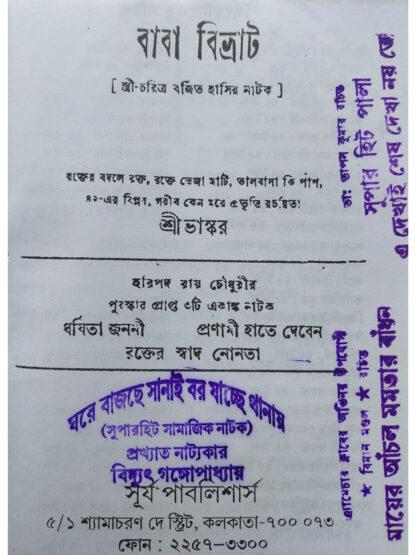 বাবা বিভ্রাট
[ স্ত্রী-চরিত্র বর্জিত হাসির নাটক ]
রক্তের বদলে রক্ত, রক্তে ভেজা মাটি, ভালবাসা কি পাপ,
৪২-এর বিপ্লব, গরীব কেন মরে প্রভৃতি রচয়িতা
শ্রীভাস্কর
হরিপদ রায় চৌধুরীর
পুরস্কার প্রাপ্ত ৩টি একাঙ্ক নাটক
ধর্ষিতা জননী প্রণামী হাতে দেবেন
রক্তের স্বাদ নোনতা
ঘরে বাজছে সানাই বর যাচ্ছে থানায়
(সুপারহিট সামাজিক নাটক)
প্রখ্যাত নাট্যকার
বিদ্যুৎ গঙ্গোপাধ্যায়
সূর্য পাবলিশার্স
৫/১ শ্যামাচরণ দে স্ট্রিট, কলকাতা-৭০০ ০৭৩
ফোন : ২২৫৭-৩৩০০
ডাঃ তাপস কুমার রচিত
সুপার হিট পালা
এ দেখাই শেষ দেখা নয় তো
এ্যামেচার ক্লাবের অভিনয় উপযোগী
★ বিমান মণ্ডল ★ রচিত
মায়ের আঁচল মমতার বাঁধন